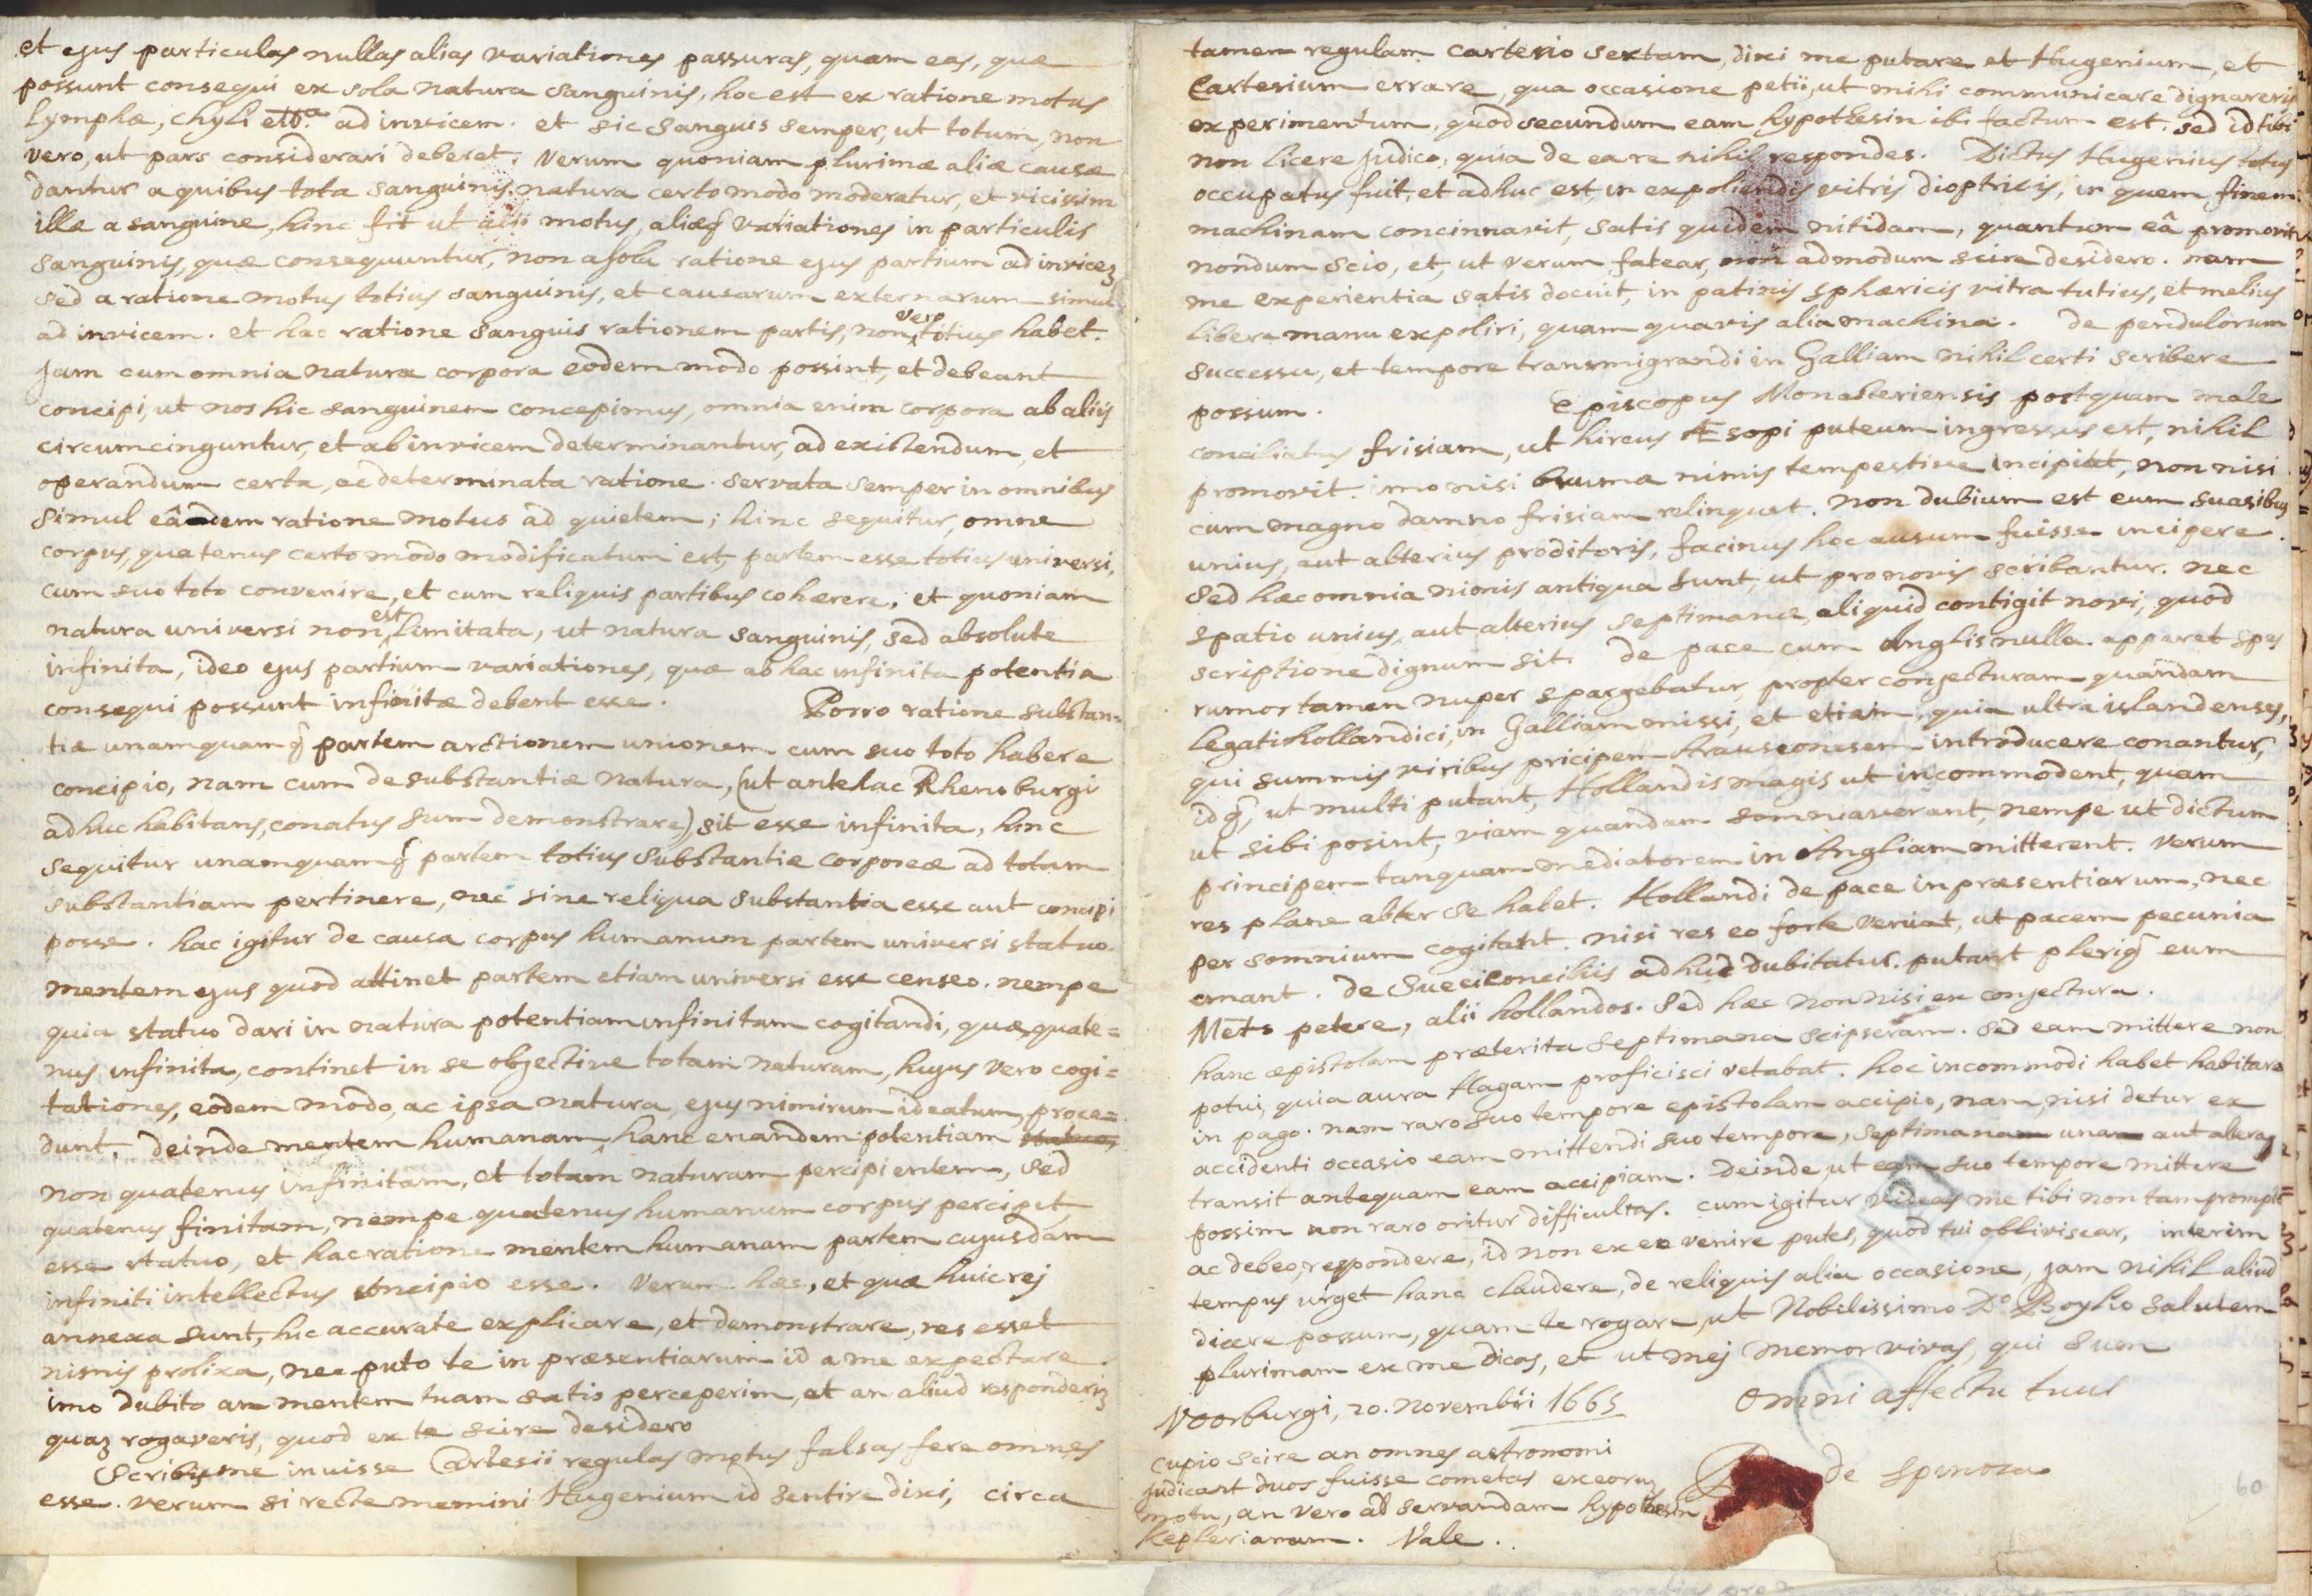 et ejus particulas nullas alias variationes passuras, quam eas, quæ
possunt consequi ex sola natura sanguinis, hoc est ex ratione motus
Lymphæ, chyli etc.ª ad invicem. et sic sanguis semper, ut totum, non
vero, ut pars considerari deberet. Verum quoniam plurimæ aliæ causæ
dantur a quibus tota sanguinis natura certo modo moderatur, et vicissim
illæ a sanguine, hinc fit ut alii motus, aliæq variationes in particulis
sanguinis, quæ consequuntur, non a sola ratione ejus partium ad invicez
sed a ratione motus totius sanguinis, et causarum externarum simul
ad invicem. et hac ratione sanguis rationem partis, non vero totius habet.
Jam cum omnia naturæ corpora eodem modo possint, et debeant
concipi, ut nos hic sanguinem concepimus, omnia enim corpora ab aliis
circumcinguntur, et ab invicem determinantur, ad existendum, et
operandum certa, ac determinata ratione. servata semper in omnibus
simul eâdem ratione motus ad quietem; hinc sequitur, omne
corpus, quatenus certo modo modificatum est, partem esse totius universi,
cum suo toto convenire, et cum reliquis partibus cohærere. et quoniam
natura universi non est limitata, ut natura sanguinis, sed absolute
infinita, ideo ejus partium variationes, quæ ab hac infinita potentia
consequi possunt infinitæ debent esse. Porro ratione substan=
tiæ unamquamq partem arctiorem unionem cum suo toto habere
concipio, nam cum de substantiæ natura, (ut antehac Rhenoburgi
adhuc habitans, conatus sum demonstrare) sit esse infinita, hinc
sequitur unamquamq partem totius substantiæ corporeæ ad totam
substantiam pertinere, nec sine reliqua substantia esse aut concipi
posse. hac igitur de causa corpus humanum partem universi statuo.
mentem ejus quod attinet partem etiam universi esse censeo. nempe
quia statuo dari in natura potentiam infinitam cogitandi, quæ, quate=
nus infinita, continet in se objective totam naturam, hujus vero cogi=
tationes, eodem modo, ac ipsa natura, ejus nimirum ideatum, proce=
dunt. deinde mentem humanam hanc eandem potentiam statuo,
non quatenus infinitam, et totam naturam percipientem, sed
quatenus finitam, nempe quatenus humanum corpus percipit,
esse statuo, et hac ratione mentem humanam partem cujusdam
infiniti intellectus concipio esse. Verum hæc, et quæ huic rej
annexa sunt, hic accurate explicare, et demonstrare, res esset
nimis prolixa, nec puto te in præsentiarum id a me expectare.
imo dubito an mentem tuam satis perceperim, et an aliud responderiz
quaz rogaveris, quod ex te scire desidero
Scribis me inuisse Cartesii regulas motus falsas fere omnes
esse. verum si recte memini Hugenium id sentire dixi, circa
tamen regulam cartesio sextam, dixi me putare et Hugenium, et
Cartesium errare, qua occasione petii, ut mihi communicare dignareris
experimentum, quod secundum eam hypothesin ibi factum est. sed id tibi
non licere judico, quia de ea re nihil respondes. Dictus Hugenius totus
occupatus fuit, et adhuc est, in expoliendis vitris dioptricis, in quem finem
machinam concinnavit, satis quidem nitidam, quantum eâ promoverit
nondum scio, et, ut verum fatear, non admodum scire desidero. nam
me experientia satis docuit, in patinis sphæricis vitra tutius, et melius
libera manu expoliri, quam quavis alia machina. de pendulorum
successu, et tempore transmigrandi in Galliam nihil certi scribere
possum. Episcopus Monasteriensis postquam male
conciliatus frisiam, ut hircus Æsopi puteum ingressus est, nihil
promovit. imo nisi bruma nimis tempestive incipiat, non nisi
cum magno damno frisiam relinquet. non dubium est eum suasibus
unius, aut alterius proditoris, facinus hoc ausum fuisse incipere.
Sed hæc omnia nimis antiqua sunt, ut pro novis scribantur. nec
spatio unius, aut alterius septimanæ, aliquid contigit novi, quod
scriptione dignum sit. de pace cum Anglis nulla apparet spes
rumor tamen nuper spargebatur, propter conjecturam quandam
legati hollandici, in Galliam missi, et etiam, quia ultra islandenses,
qui summis viribus pricipem Arausionesem introducere conantur,
idq, ut multi putant, Hollandis magis ut incommodent, quam
ut sibi posint, viam quandam somniaverant, nempe ut dictum
principem tanquam mediatorem in Angliam mitterent. verum
res plane aliter se habet. Hollandi de pace in præsentiarum, nec
per somnium cogitant. nisi res eo forte veniat, ut pacem pecunia
emant. de Sueci conciliis adhuc dubitatur. putant pleriq eum
Mets petere, alii hollandos. sed hæc non nisi ex conjectura.
hanc epistolam præterita septimana scipseram. sed eam mittere non
potui, quia aura Hagam proficisci vetabat. hoc incommodi habet habitare
in pago. nam raro suo tempore epistolam accipio, nam, nisi detur ex
accidenti occasio eam mittendi suo tempore, septimana una aut altera
transit antequam eam accipiam. deinde, ut eam suo tempore mittere
possim non raro oritur difficultas. cum igitur videas me tibi non tam prompte
ac debeo, respondere, id non ex eo venire putes, quod tui obliviscar, interim
tempus urget hanc claudere, de reliquis alia occasione, jam nihil aliud
dicere possum, quam te rogare, ut Nobilissimo Dº Boylio salutem
plurimam ex me dicas, et ut mej memor vivas, qui sum
Voorburgi, 20. novembri 1665 omni affectu tuus
de spinoza
cupio scire an omnes astronomi
judicant duos fuisse cometas ex eoruz
motu, an vero ad servandam hypothesin
Keplerianam. Vale.
60